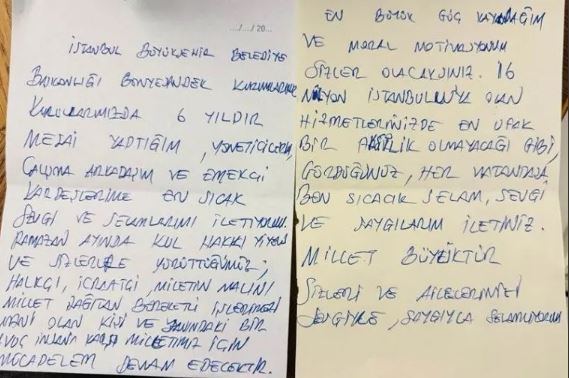 .../.../ 20...
İSTANBUL BÜYÜKŞEHİR BELEDİYE
BAŞKANLIĞI BÜNYESİNDEK KURUMLARIMIZ
KURULLARIMIZDA 6 YILDIR
MESAİ YAPTIĞIM, YÖNETİCİLERİM,
ÇALIŞMA ARKADAŞIM VE EMEKÇİ
KARDEŞLERİME EN SICAK
SEVGİ VE SELAMLARIMI İLETİYORUM.
RAMAZAN AYINDA KUL HAKKI YİYEN
VE SİZLERLE YÜRÜTTÜĞÜMÜZ;
HALKÇI, İCRAATÇI, MİLLETİN MALINI
MİLLET DAĞITAN BEREKETLİ İŞLERİMİZİ
MANİ OLAN KİŞİ VE YANINDAKİ BİR
AVUÇ İNSANA KARŞI MİLLETİMİZ İÇİN
MÜCADELEM DEVAM EDECEKTİR.
EN BÜYÜK GÜÇ KAYNAĞIM
VE MORAL MOTİVASYONUM
SİZLER OLACAKSINIZ. 16
MİLYON İSTANBULLU'YA OLAN
HİZMETLERİNİZDE EN UFAK
BİR OLMAYACAĞI GİBİ,
GÖRDÜĞÜNÜZ, HER VATANDAŞA
BEN SICACIK SELAM, SEVGİ
VE SAYGILARIM İLETİNİZ.
MİLLET BÜYÜKTÜR
SİZLERİ VE AİLELERİNİZİ
SEVGİYLE, SAYGIYLA SELAMLIYORUM